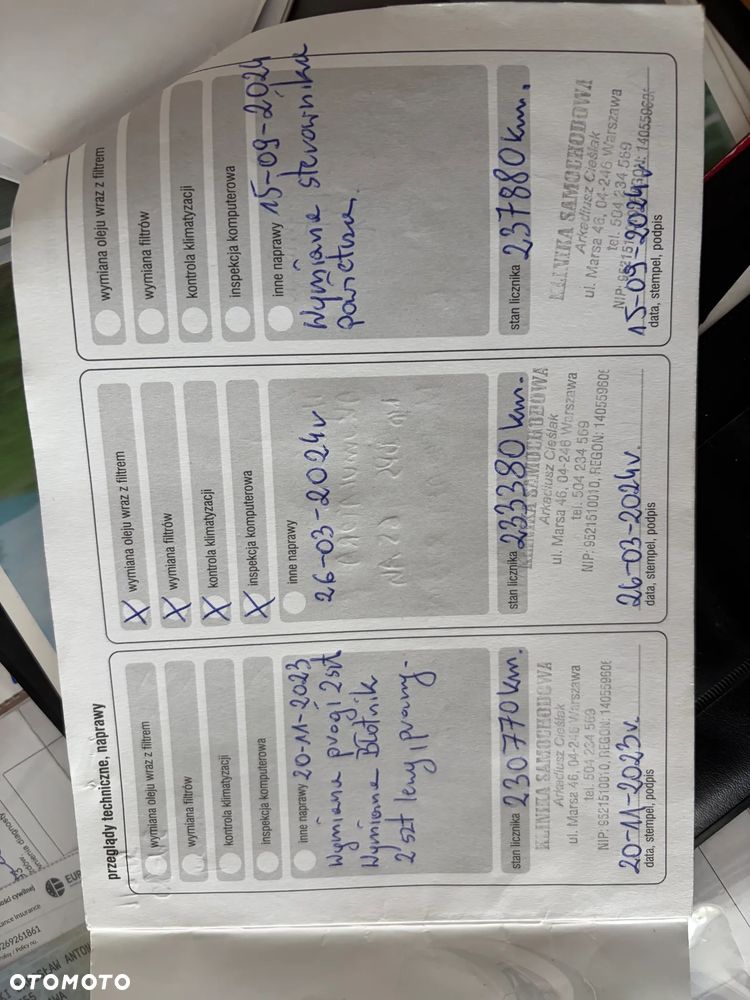 przeglądy techniczne, naprawy
wymiana oleju wraz z filtrem
wymiana filtrów
kontrola klimatyzacji
inspekcja komputerowa
inne naprawy 20-11-2023
Wymiana progi 2szt
Wymiana Błotnik
2 szt lewy, prawy.
stan licznika 230770 km.
KLINIKA SAMOCHODOWA
Arkadiusz Cieślak
ul. Marsa 46, 04-246 Warszawa
tel. 504 234 569
NIP: 9521510010, REGON: 14055960
20-11-2023r.
data, stempel, podpis
X wymiana oleju wraz z filtrem
X wymiana filtrów
X kontrola klimatyzacji
X inspekcja komputerowa
inne naprawy
26-03-2024r
stan licznika 233380 km.
KLINIKA SAMOCHODOWA
Arkadiusz Cieślak
ul. Marsa 46, 04-246 Warszawa
tel. 504 234 569
NIP: 9521510010, REGON: 14055960
26-03-2024r.
data, stempel, podpis
wymiana oleju wraz z filtrem
wymiana filtrów
kontrola klimatyzacji
inspekcja komputerowa
inne naprawy 15-09-2024
Wymiana sterownika
powietrza.
stan licznika 237880 km.
KLINIKA SAMOCHODOWA
Arkadiusz Cieślak
ul. Marsa 46, 04-246 Warszawa
tel. 504 234 569
NIP: 9521510010, REGON: 14055960
15-09-2024r.
data, stempel, podpis
7269261861
Policy no.
OTOMOTO